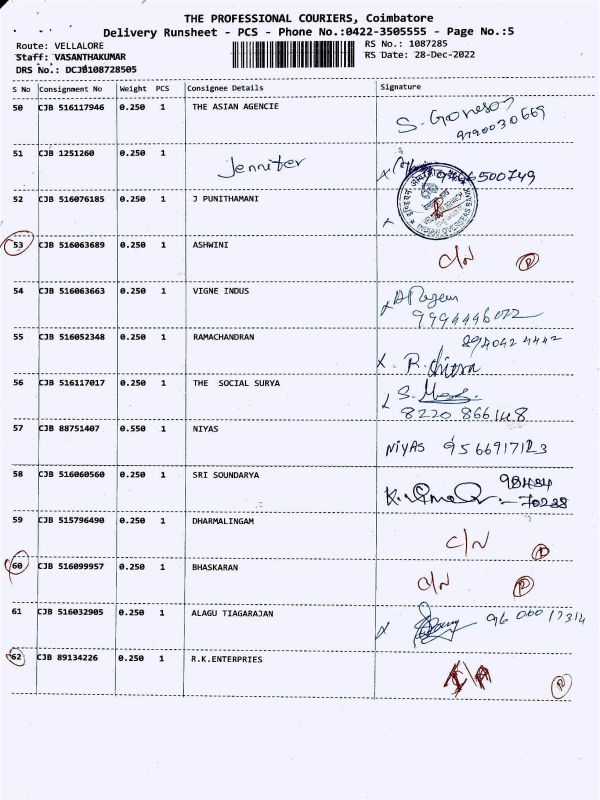 THE PROFESSIONAL COURIERS, Coimbatore
Delivery Runsheet - PCS - Phone No.:0422-3505555 - Page No.:5
Route: VELLALORE
RS No.: 1087285
Staff: VASANTHAKUMAR
RS Date: 28-Dec-2022
DRS No.: DCJB108728505
S No Consignment No Weight PCS Consignee Details Signature
50 CJB 516117946 0.250 1 THE ASIAN AGENCIE S. Gonesan
9790030669
51 CJB 1251260 0.250 1 Jennifer
500749
52 CJB 516076185 0.250 1 J PUNITHAMANI
INDIAN OVERSEAS BANK
53 CJB 516063689 0.250 1 ASHWINI C/N P
54 CJB 516063663 0.250 1 VIGNE INDUS
9994446022
55 CJB 516052348 0.250 1 RAMACHANDRAN 894042 4442
x. R.
56 CJB 516117017 0.250 1 THE SOCIAL SURYA S.
8220 866148
57 CJB 88751407 0.550 1 NIYAS NIYAS 9566917123
58 CJB 516060560 0.250 1 SRI SOUNDARYA 98484
70238
59 CJB 515796490 0.250 1 DHARMALINGAM C/N P
60 CJB 516099957 0.250 1 BHASKARAN C/N P
61 CJB 516032905 0.250 1 ALAGU TIAGARAJAN x 96 00017314
62 CJB 89134226 0.250 1 R.K.ENTERPRIES P